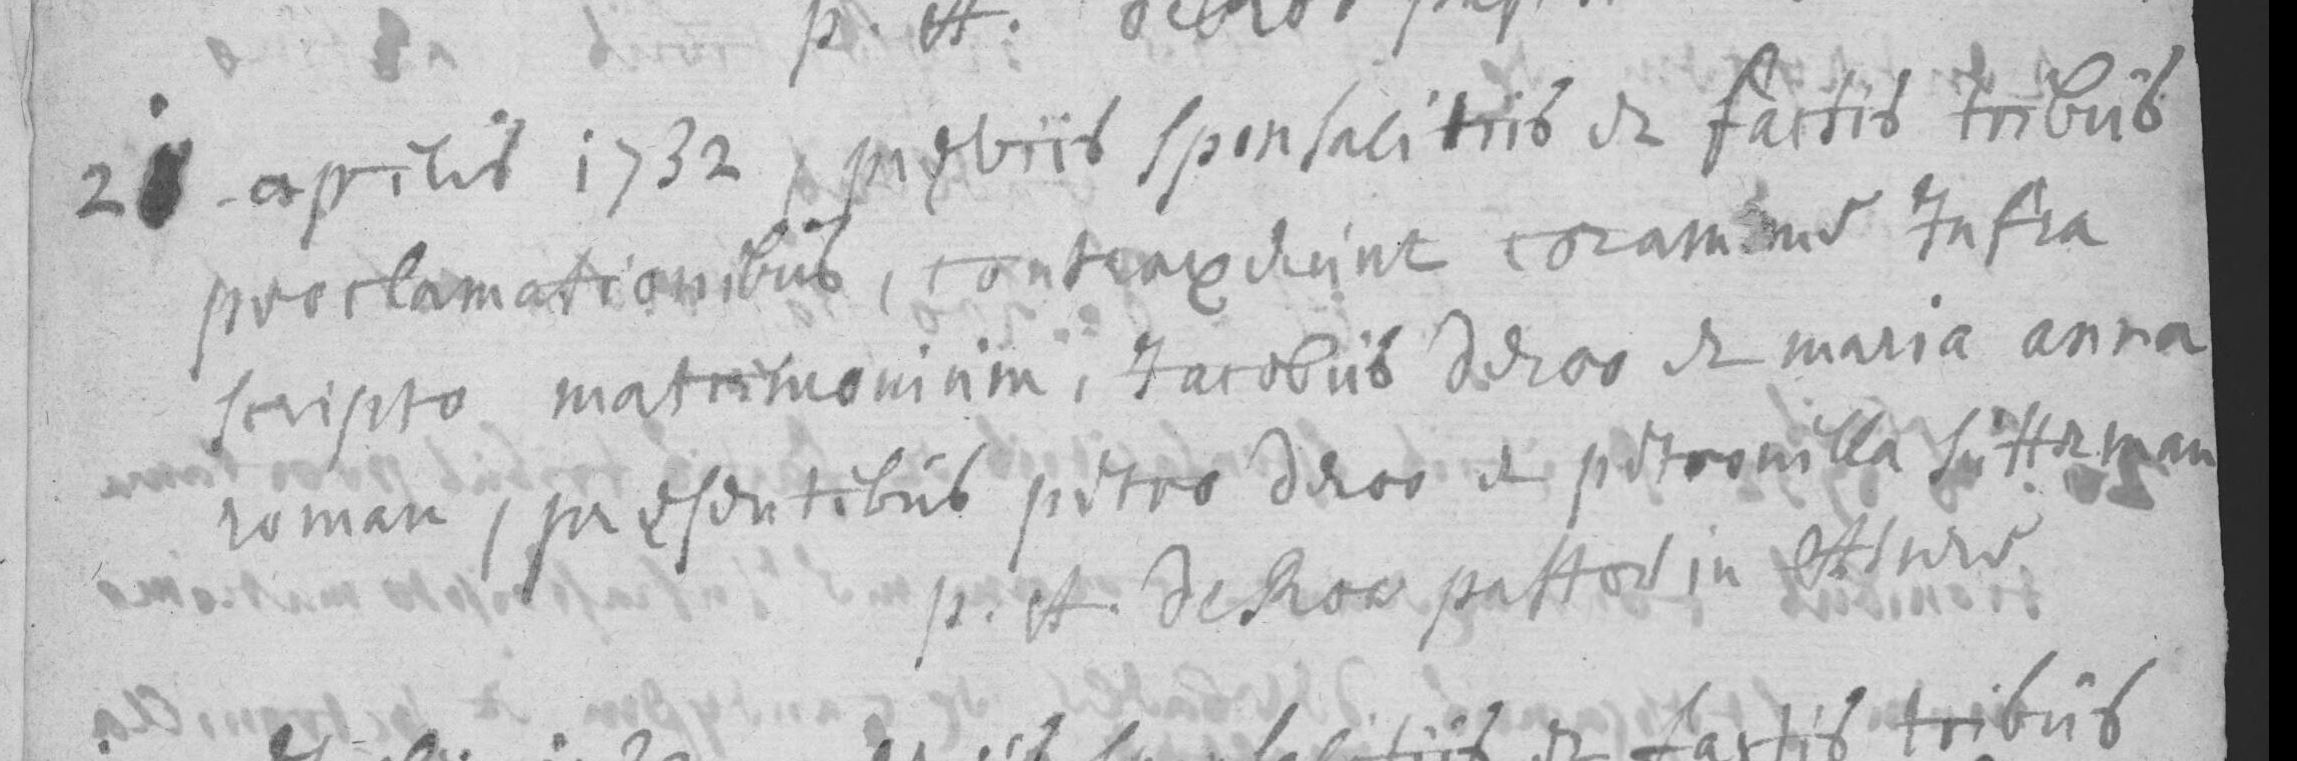 p. A. de Roo
2i aprilis i732, pręviis sponsalitiis et factis tribus
proclamationibus, contraxerunt coram me Infra
scripto matrimonium, Jacobus deroo et maria anna
roman, pręsentibus petro deroo et petronilla hutterman
p. A. de Roo pastor in
sponsalitiis et factis tribus